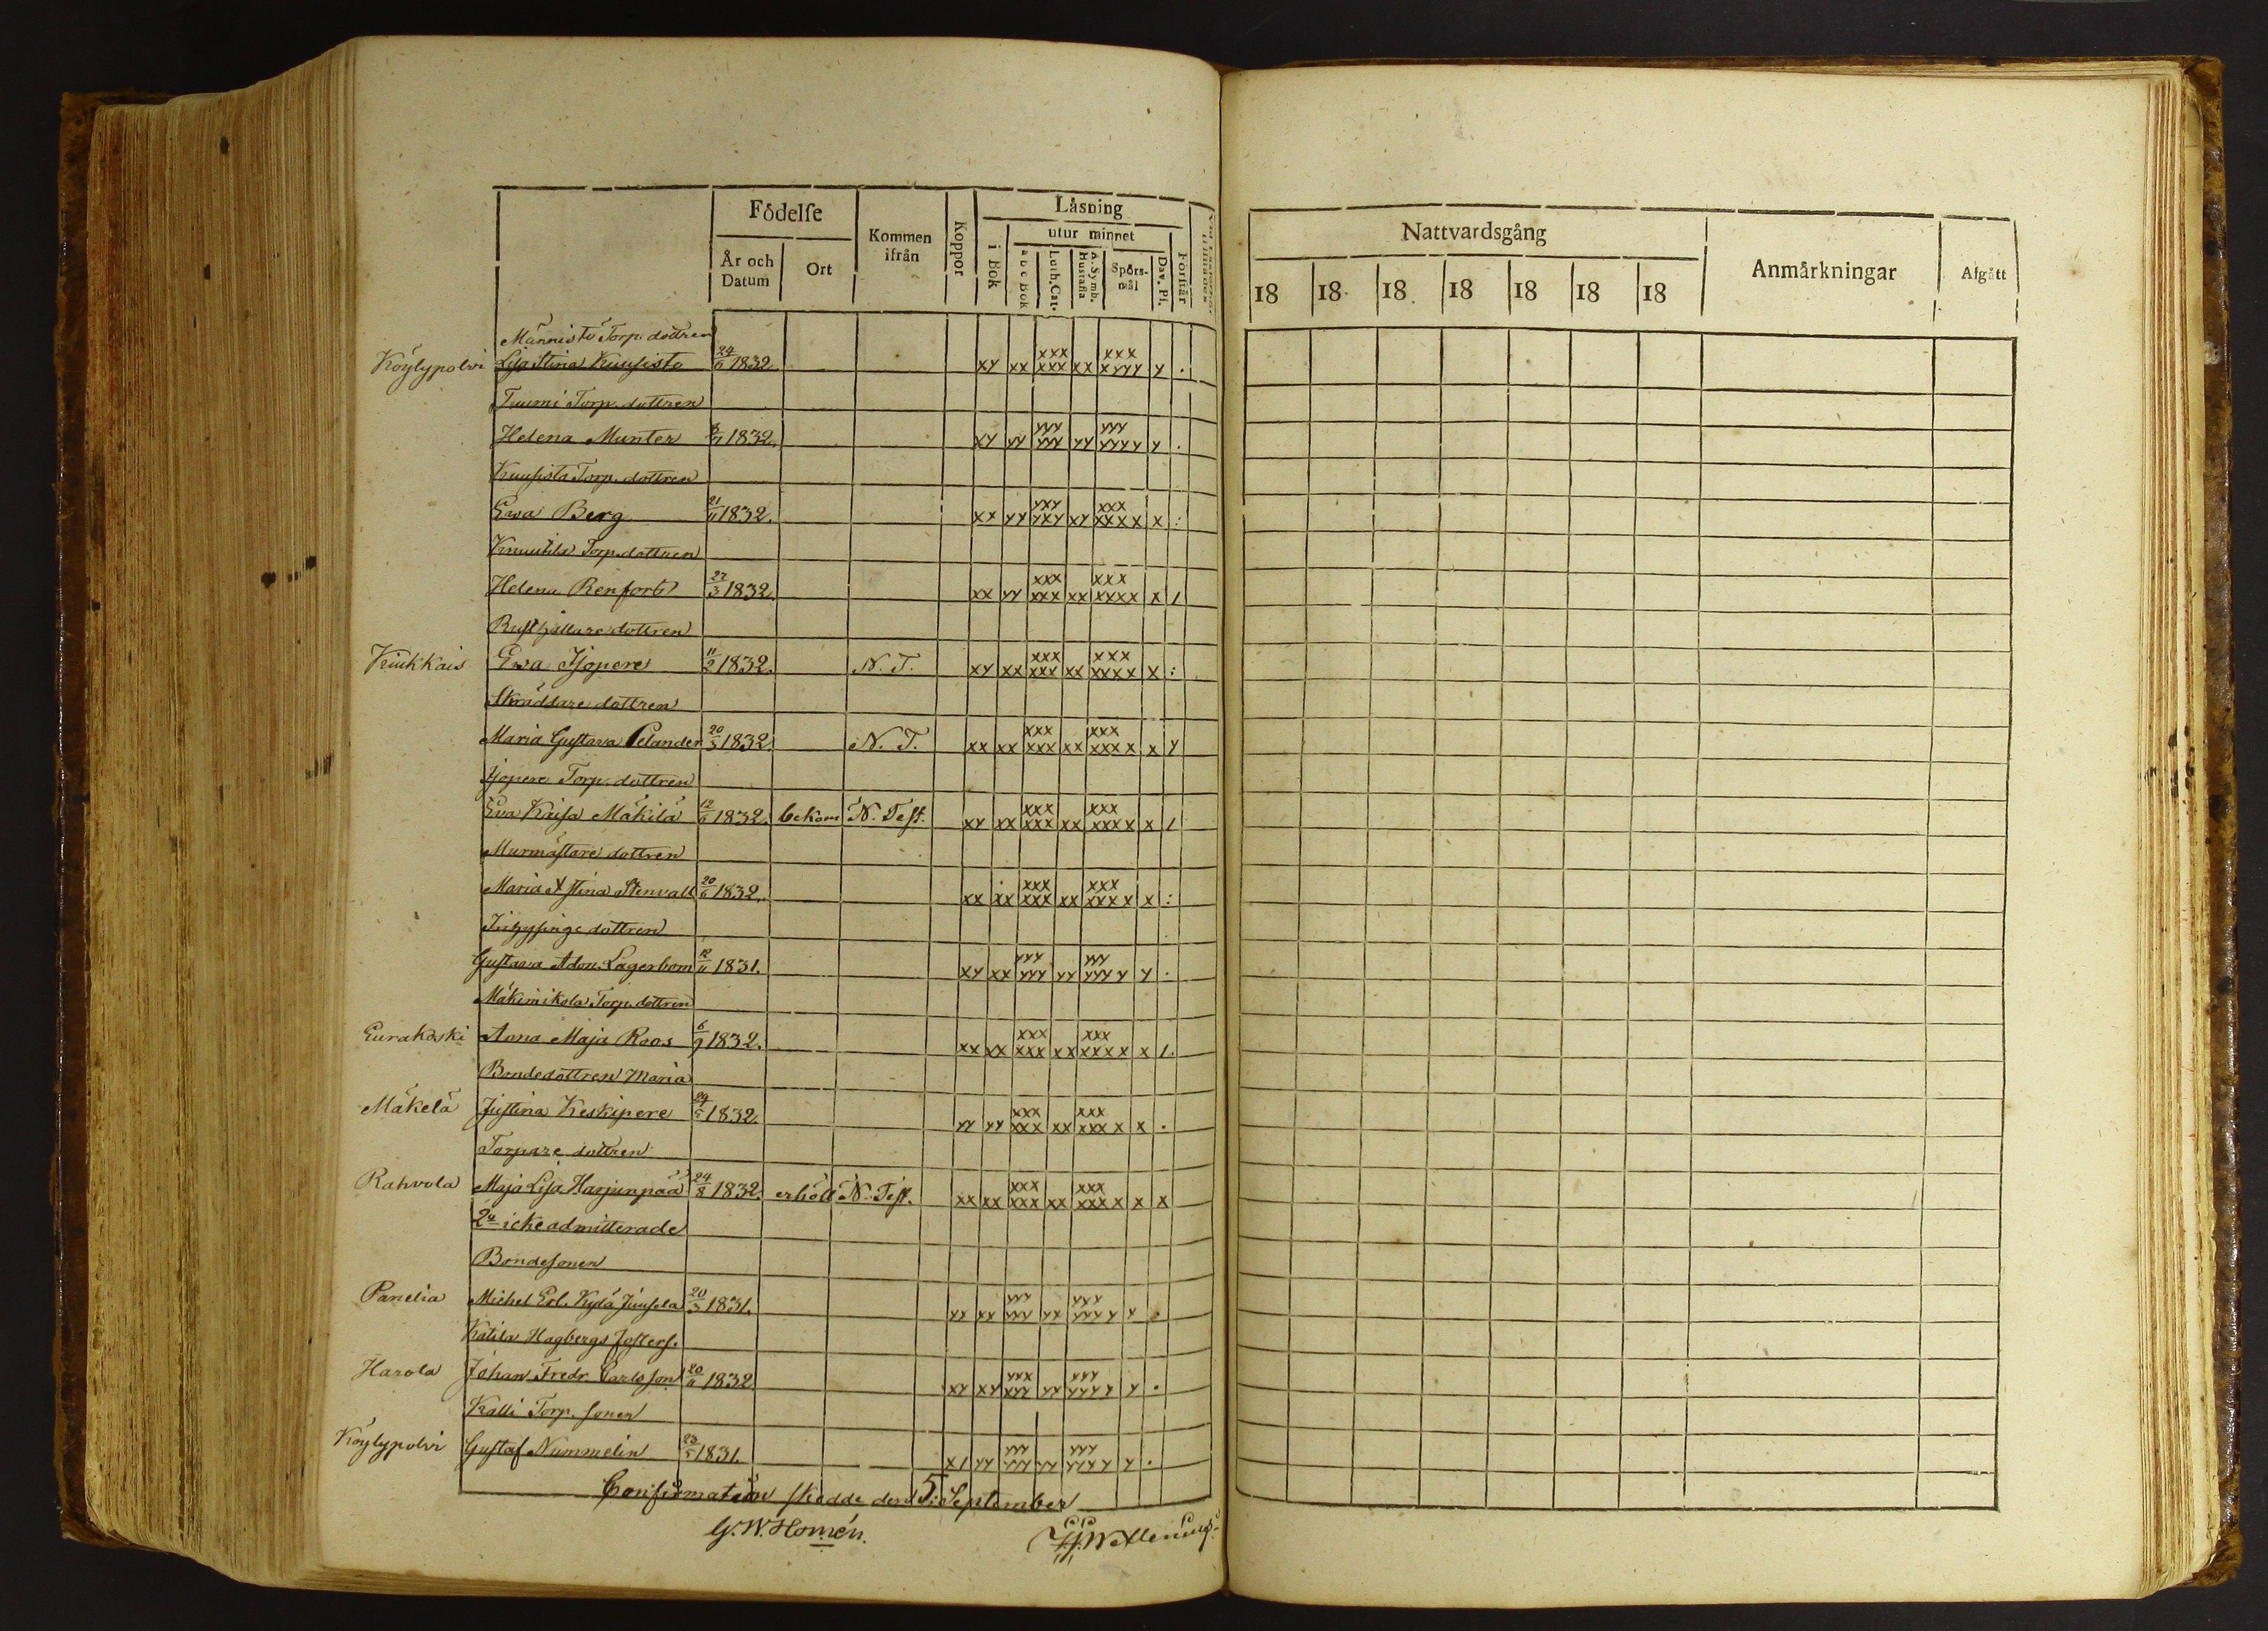 Födelse
År och Datum
Ort
Kommen ifrån
Koppor
Läsning
i Bok
utur minnet
a b c Bok
Luth. Cat.
A. Symb. Hustafla
Spörsmål
Dav. Ps.
Förstår
Nattvardsgång
18 18 18 18 18 18 18
Anmärkningar
Afgått
Männistö Torp. dottren
Köylypolvi Lisa Stina Kuusisto 24/6 1832. xy xx xxx xxx xx xxx xyyy y .
Tuomi Torp. dottren
Helena Munter 1832. xy yy yyy yyy yy yyy yyyy y .
Kuusisto Torp. dottren
Ewa Berg 21/11 1832. xx yy yyy yxy xy xxx xxxx x :
Knuutila Torp. dottren
Helena Renfors 27/3 1832. xx yy xxx xxx xx xxx xxxx x /
Rusthållare dottren
Kiukkais Ewa Jjopere 11/2 1832. N. T. xy xx xxx xxx xx xxx xxxx x :
Skräddare dottren
Maria Gustava Pelander 20/3 1832. N. T. xx xx xxx xxx xx xxx xxxx x y
Jjopere Torp. dottren
Eva Kaisa Mäkilä 12/6 1832. bekom N. Test. xy xx xxx xxx xx xxx xxxx x /
Murmästare dottren
Maria Stina Stenvall 20/6 1832. xx xx xxx xxx xx xxx xxxx x :
dottren
Gustava Adon. Lagerbom 12/11 1831. xy xx yyy yyy yy yyy yyyy y .
Mäkimikola Torp. dottren
Eurakoski Anna Maja Roos 6/9 1832. xx xx xxx xxx xx xxx xxxx x /.
Bondedottren Maria
Mäkelä Justina Keskipere 29/5 1832. yy yy xxx xxx xx xxx xxxx x .
Torpare dottren
Rahvola Maja Lisa Harjunpää 24/8 1832. erhöll N. Test. xx xx xxx xxx xx xxx xxxx x x
2o icke admitterade
Bondesonen
Panelia Michel Erl. Kylä Juusela 20/3 1831. yy xy yyy yyy yy yyy yyyy y .
Katila Hagbergs fosters.
Harola Johan Fredr. Carlsson 20/11 1832. xy xy yyx xyy yy yyy yyyy y .
Kalli Torp. sonen
Köylypolvi Gustaf Nummelin 23/5 1831. x/ yy yyy yyy yy yyy yyxy y .
Confirmation skedde den 5: September
G. W. Homén.